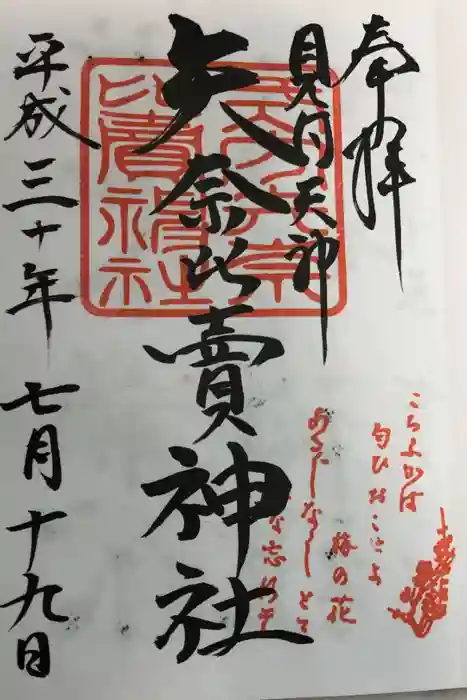 奉拝
見付天神
矢奈比賣神社
平成三十年七月十九日
比賣神社
こちふかば
匂ひおこせよ
梅の花
あるじなしとて
な忘れそ